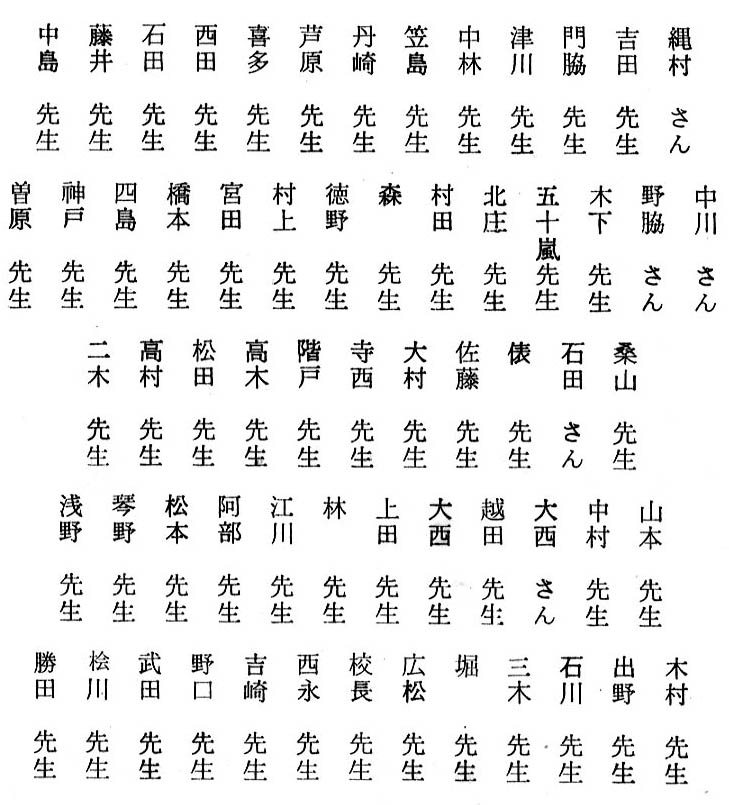 縄村 さん
吉田 先生
門脇 先生
津川 先生
中林 先生
笠島 先生
丹崎 先生
芦原 先生
喜多 先生
西田 先生
石田 先生
藤井 先生
中島 先生
中川 さん
野脇 さん
木下 先生
五十嵐 先生
北庄 先生
村田 先生
森 先生
徳野 先生
村上 先生
宮田 先生
橋本 先生
四島 先生
神戸 先生
曽原 先生
桑山 先生
石田 さん
俵 先生
佐藤 先生
大村 先生
寺西 先生
階戸 先生
高木 先生
松田 先生
高村 先生
二木 先生
山本 先生
中村 先生
大西 さん
越田 先生
大西 先生
上田 先生
林 先生
江川 先生
阿部 先生
松本 先生
琴野 先生
浅野 先生
木村 先生
出野 先生
石川 先生
三木 先生
堀 先生
広松 先生
校長 先生
西永 先生
吉崎 先生
野口 先生
武田 先生
桧川 先生
勝田 先生